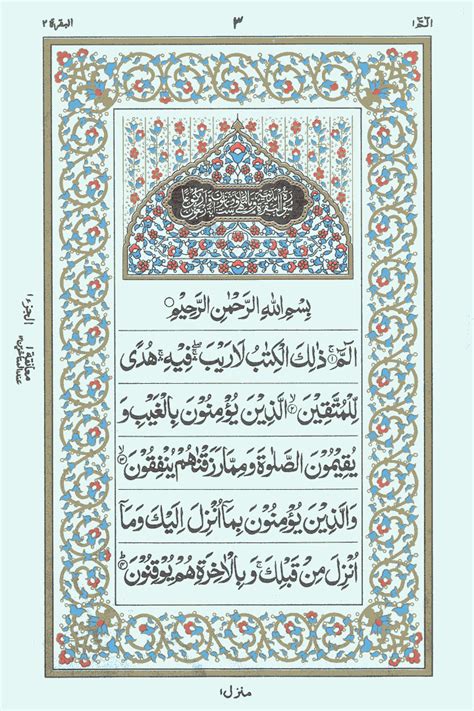 البقرة ٢ ٣ الٓمّٓ ١
سُوْرَةُ الْبَقَرَةِ مَدَنِيَّةٌ
بِسْمِ اللّٰهِ الرَّحْمٰنِ الرَّحِيْمِ ○
الٓمّٓ ۚ﴿۱﴾ ذٰلِكَ الْكِتٰبُ لَا رَيْبَ ۛۖ فِيْهِ ۛۚ هُدًى
لِّلْمُتَّقِيْنَ ۙ﴿۲﴾ الَّذِيْنَ يُؤْمِنُوْنَ بِالْغَيْبِ وَ
يُقِيْمُوْنَ الصَّلٰوةَ وَمِمَّا رَزَقْنٰهُمْ يُنْفِقُوْنَ ۙ﴿۳﴾
وَالَّذِيْنَ يُؤْمِنُوْنَ بِمَآ اُنْزِلَ اِلَيْكَ وَمَآ
اُنْزِلَ مِنْ قَبْلِكَ ۚ وَبِالْاٰخِرَةِ هُمْ يُوْقِنُوْنَ ؕ
الجزء ١
معانقة ١
منزل ١